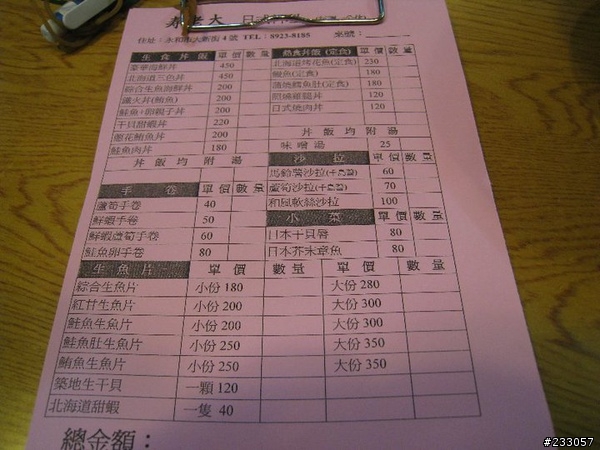 老大 日
住址：永和市大新街4號 TEL：8923-8185 桌號：
生食丼飯 單價 數量
豪華海鮮丼 450
北海道三色丼 450
綜合生魚海鮮丼 200
鐵火丼(鮪魚) 200
鮭魚+卵親子丼 200
干貝甜蝦丼 220
蔥花鮪魚丼 200
鮭魚肉丼 180
丼飯均附湯
熟食丼飯(定食) 單價 數量
北海道烤花魚(定食) 230
鰻魚(定食) 180
蒲燒鱈魚肚(定食) 180
照燒雞腿丼 120
日式燒肉丼 120
丼飯均附湯
味噌湯 25
沙拉 單價 數量
馬鈴薯沙拉(千島醬) 60
蘆筍沙拉(千島醬) 70
和風軟絲沙拉 100
手卷 單價 數量
蘆筍手卷 40
鮮蝦手卷 50
鮮蝦蘆筍手卷 60
鮭魚卵手卷 80
小菜 單價 數量
日本干貝唇 80
日本芥末章魚 80
生魚片 單價 數量 單價 數量
綜合生魚片 小份 180 大份 280
紅甘生魚片 小份 200 大份 300
鮭魚生魚片 小份 200 大份 300
鮭魚肚生魚片 小份 250 大份 350
鮪魚生魚片 小份 250 大份 350
築地生干貝 一顆 120
北海道甜蝦 一隻 40
總金額：
#233057